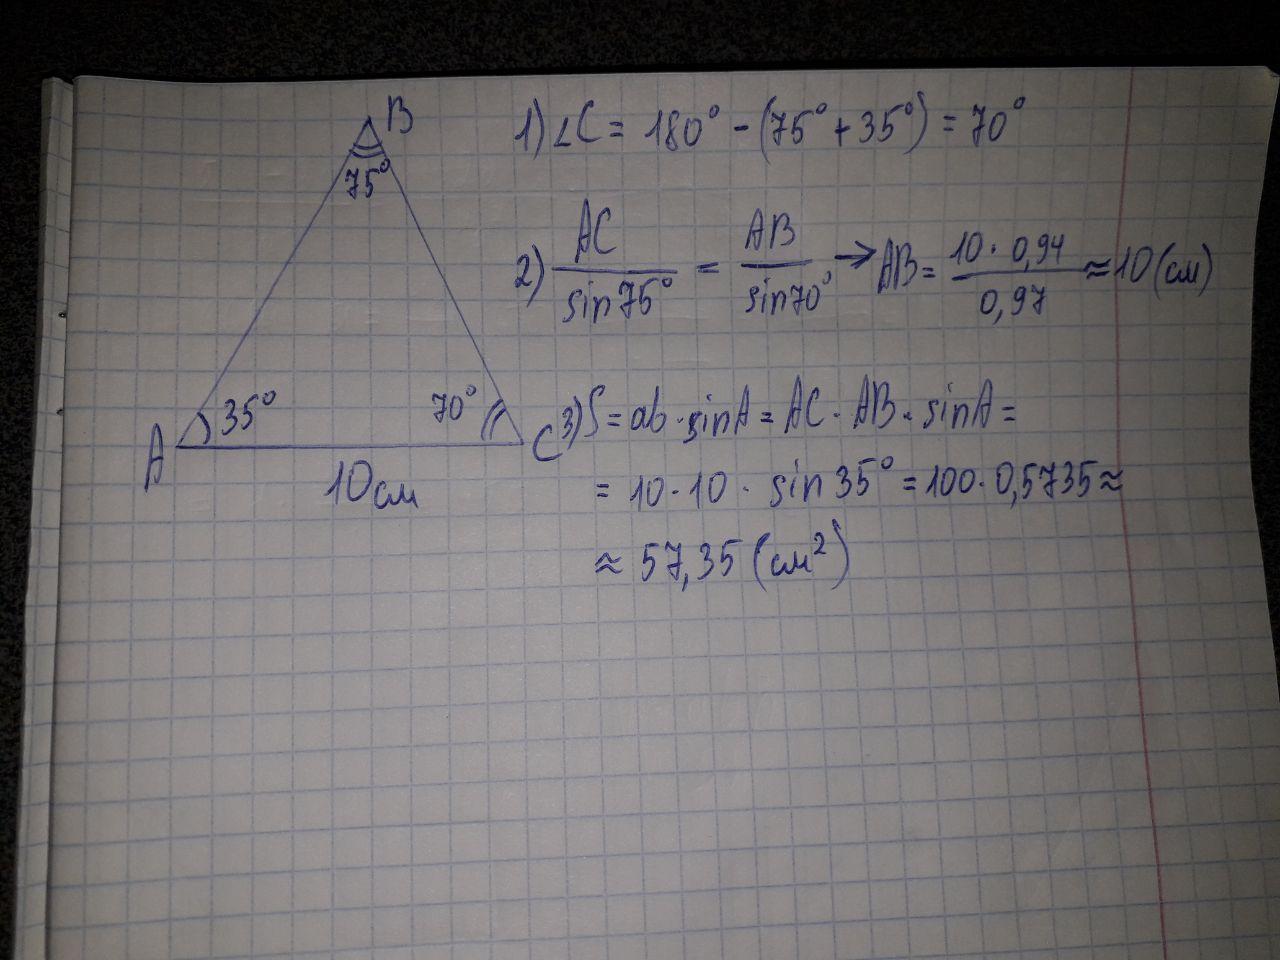 B
75°
A
35°
70°
C
10 см
1) ∠C = 180° - (75° + 35°) = 70°
2) AC / sin75° = AB / sin70° → AB = 10 · 0,94 / 0,97 ≈ 10 (см)
3) S = ab · sinA = AC · AB · sinA =
= 10 · 10 · sin 35° = 100 · 0,5735 ≈
≈ 57,35 (см²)